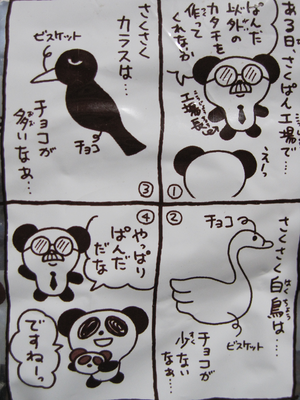 ある日、さくぱん工場で…
ぱんだ
以外の
カタチを
作って
くれないか
工場長
えーっ
①
②
さくさく白鳥は…
チョコ
ビスケット
チョコが
少ない
なぁ…
さくさく
カラスは…
ビスケット
チョコ
チョコが
多いなぁ…
③
④
やっぱり
ぱんだ
だな
ですねーっ